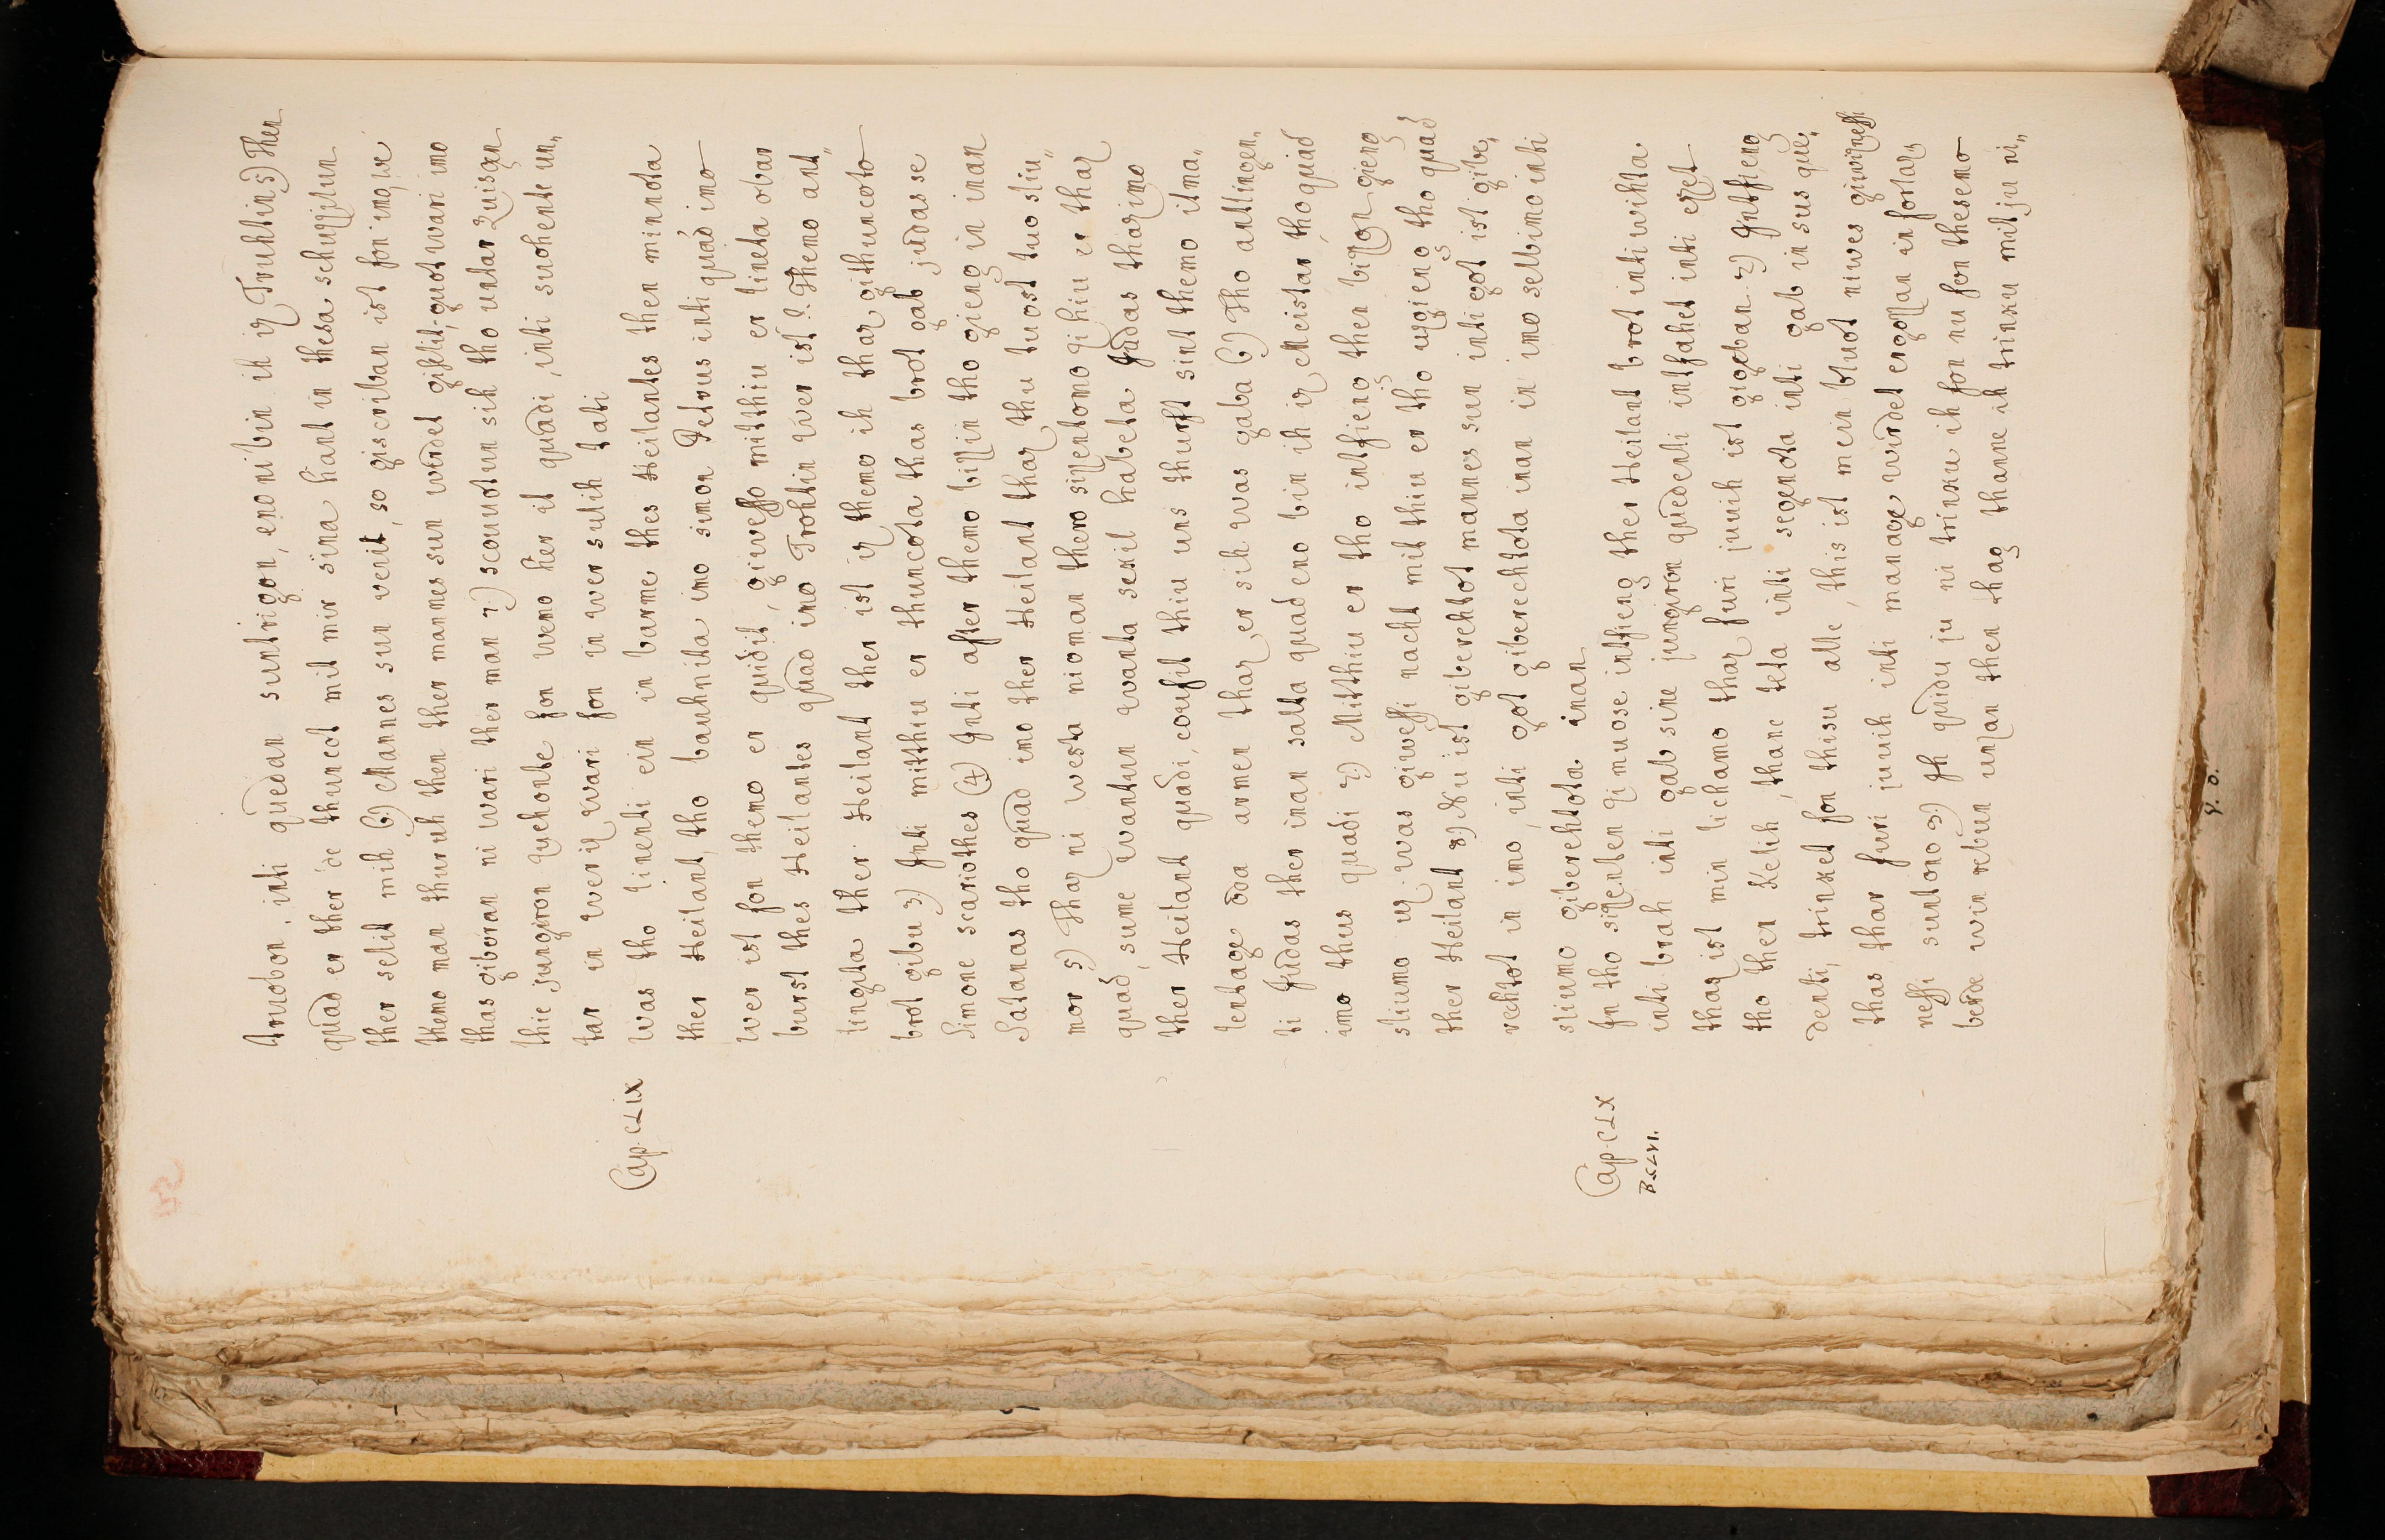 truobon, inti quedan suntrigon, eno ni bin ih iz Truhtin 5) Ther
quad er ther de thuncot mit mir sina hant in thesa schuzzilun
ther selit mih 6) Mannes sun verit, so giscriban ist fon imo, we
themo man thuruh then ther mannes sun wirdet giselit, guot wari imo
thas giboran ni wari ther man 7) scouuotun sih tho untar zuisgen
thie jungiron zuehonte fon wemo her it quadi, inti suohente un„
tar in wer iz wari fon in wer sulih tati
Cap. CLIX
was tho linenti ein in barme thes Heilantes then minnota
ther Heilant, tho bauhnita imo simon Petrus inti quad imo
wer ist fon themo er quidit, giwesso mitthiu er lineta obar
brust thes Heilantes quad imo Trohtin wer ist? Themo ant„
lingita ther Heilant ther ist iz themo ih thaz githuncoto
brot gibu 3) Inti mitthiu er thuncota thas brot gab judasse
Simone scariothes (4) Inti after themo bizzin tho gieng in inan
Satanas tho quad imo ther Heilant thaz thu tuost tuo sliu„
mor 5) Thaz ni westa nioman thero sizentomo zi hiu er thaz
quad, sume wantun wanta sekil habeta Judas thaz imo
ther Heilant quadi, coufit thiu uns thurft sint themo itma„
lentage oda armen thaz er sih was gaba 6) Tho antlingen„
ti Judas ther inan salta quad eno bin ih iz Meistar, tho quad
imo thus quadi 7) Mitthiu er tho intfieng then bizzon gieng
sliumo uz was giwessi nacht mit thiu er tho uzgieng tho quad
ther Heilant 8) Nu ist giberehtot mannes sun inti got ist gibe„
rechtot in imo, inti got giberechtota inan in imo selbimo inti
sliumo giberehtota inan
Cap. CLX
B. CLVI.
In tho sizenten zi muose intfieng ther Heilant brot inti wihta
inti brah inti gab sine jungiron quedenti intfahet inti ezet
thaz ist min lichamo thaz furi juuih ist gigeban 2) Intfieng
tho then Kelih, thanc teta inti segenota inti gab in sus que„
denti, trinket fon thisu alle, this ist mein bluot niwes giwiznessi
thas thar furi juuih inti manage wirdet ergozzan in forlaz
nessi suntono 3) Ih quidu ju ni trinku ih fon nu fon thesemo
berde win rebun unzan then thag thanne ih trinku mit ju ni„